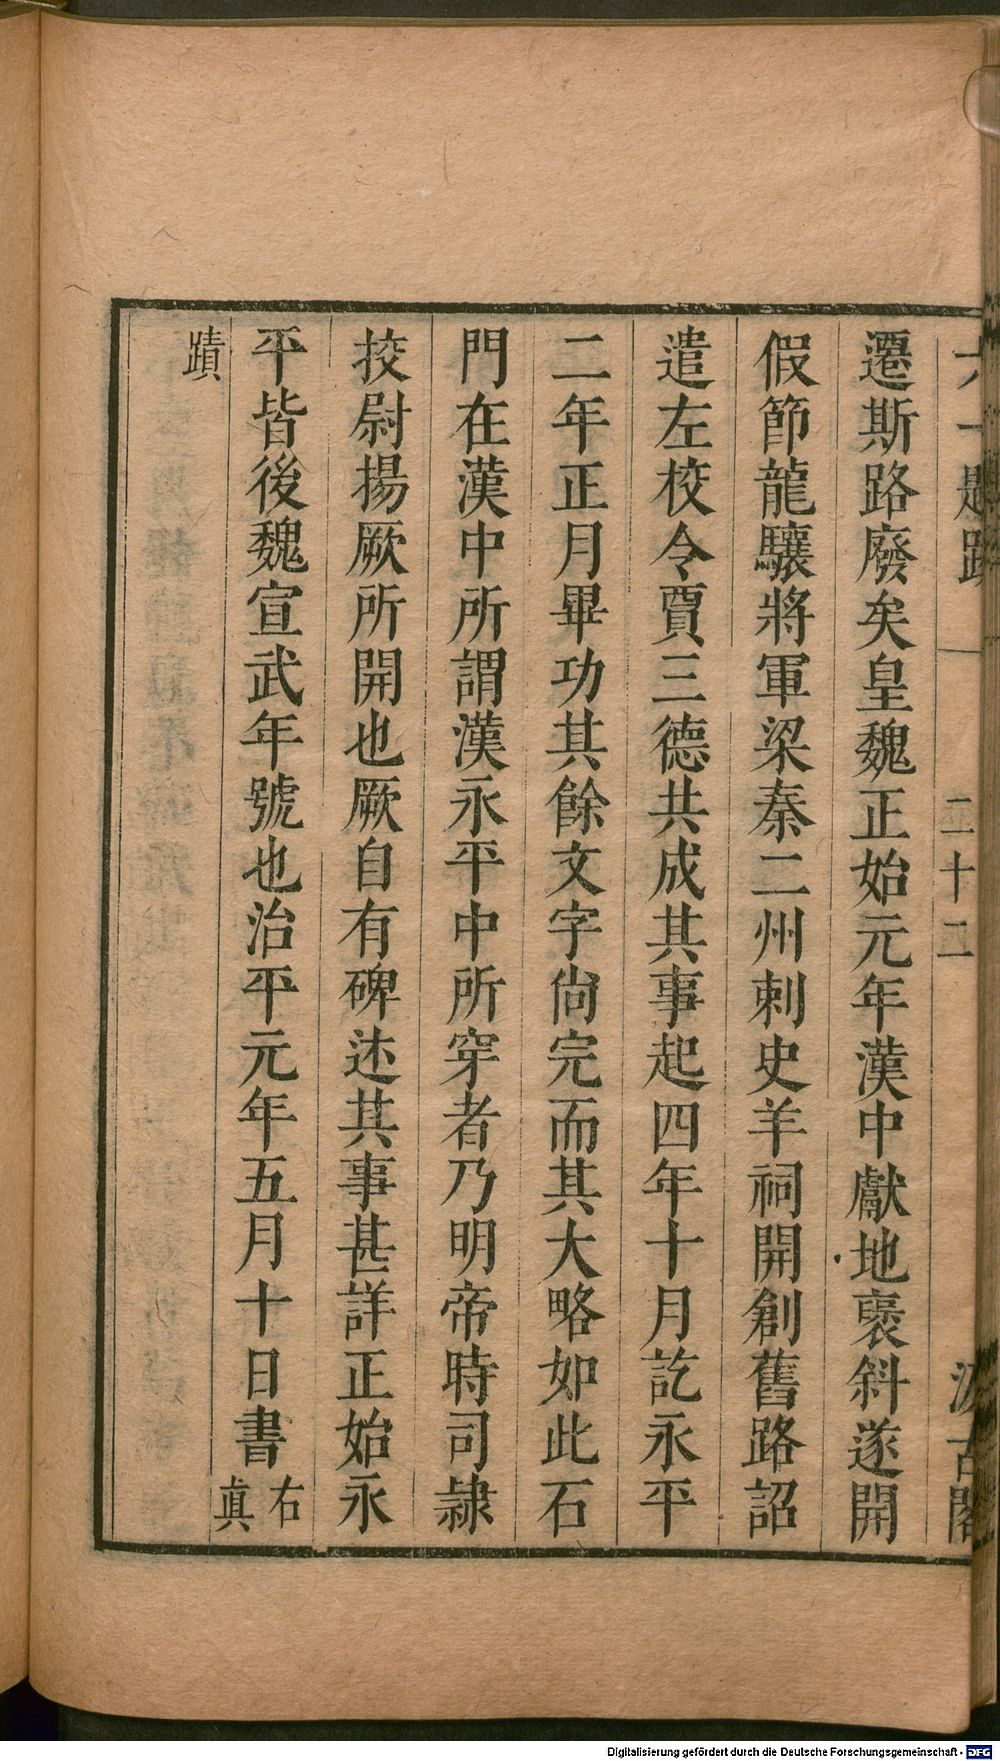 六一題跋 二十二 汲古閣
遷斯路廢矣皇魏正始元年漢中獻地褒斜遂開
假節龍驤將軍梁秦二州刺史羊祠開創舊路詔
遣左校令賈三德共成其事起四年十月訖永平
二年正月畢功其餘文字尙完而其大略如此石
門在漢中所謂漢永平中所穿者乃明帝時司隷
挍尉揚厥所開也厥自有碑述其事甚詳正始永
平皆後魏宣武年號也治平元年五月十日書右眞
蹟
Digitalisierung gefördert durch die Deutsche Forschungsgemeinschaft - DFG